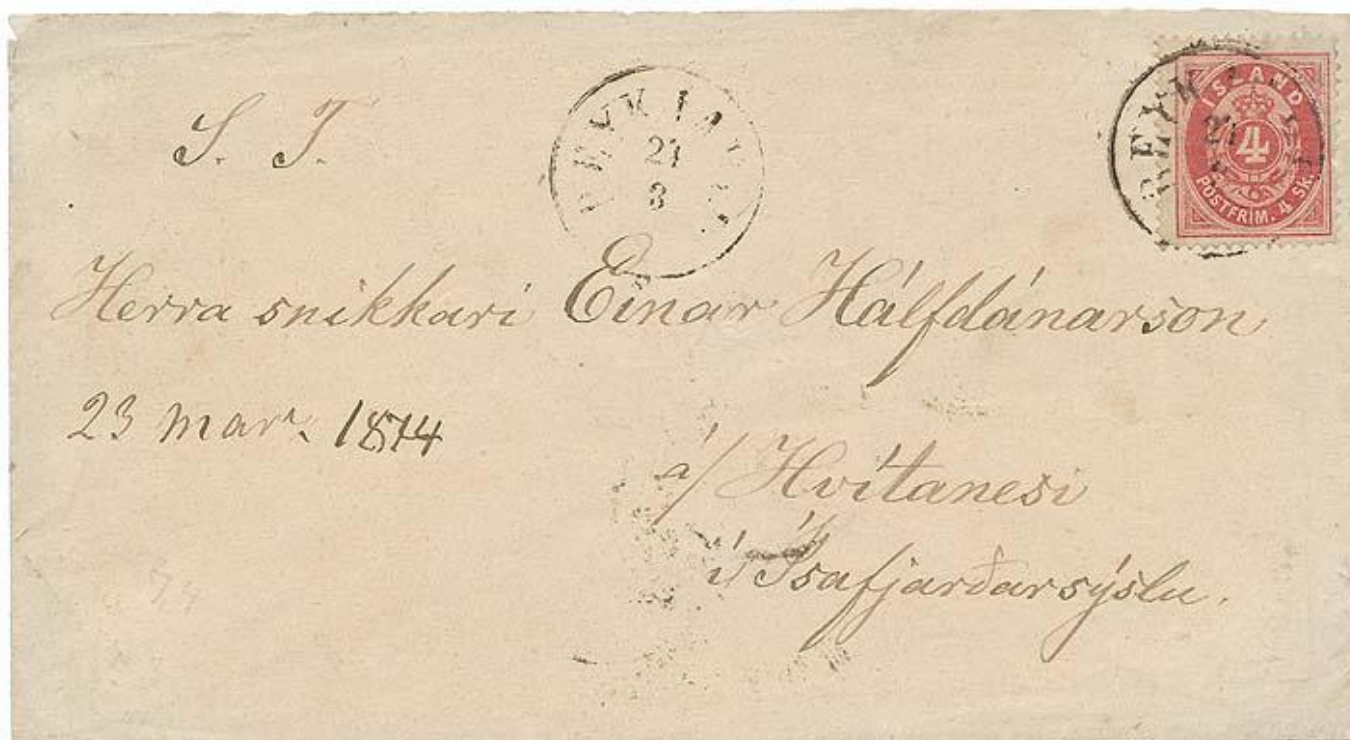 S. T.
REYKIAVIK
21
3
ÍSLAND
4
PÓSTFRIM. 4 SK.
Herra snikkari Einar Hálfdánarson
23 mar. 1874
á/ Hvítanesi
í/ Ísafjarðarsýslu.